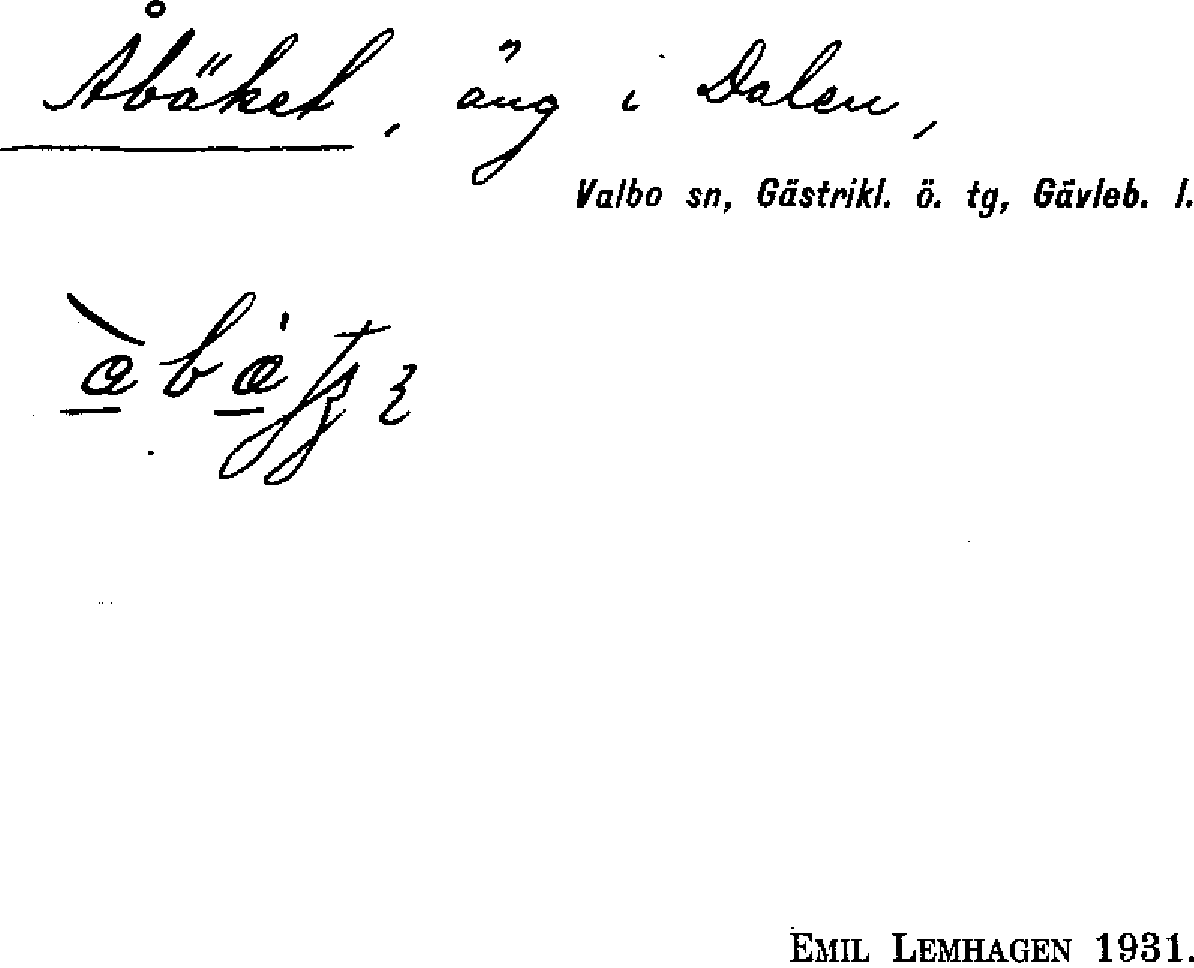 Åbäket, äng i Dalen,
Valbo sn, Gästrikl. ö. tg, Gävleb. l.
EMIL LEMHAGEN 1931.